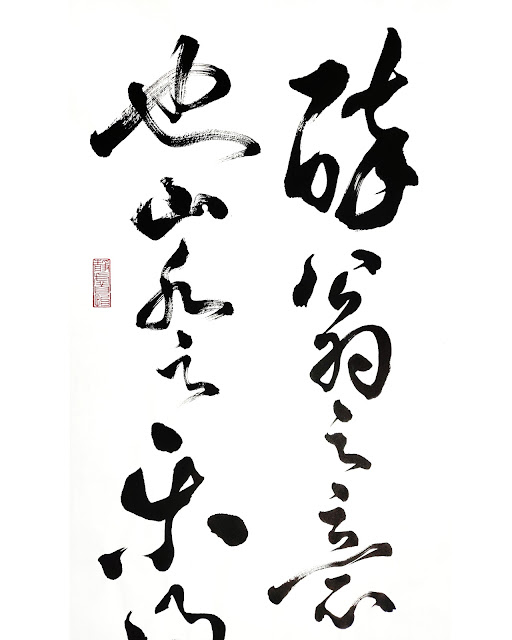 醉翁之意
也山水之乐